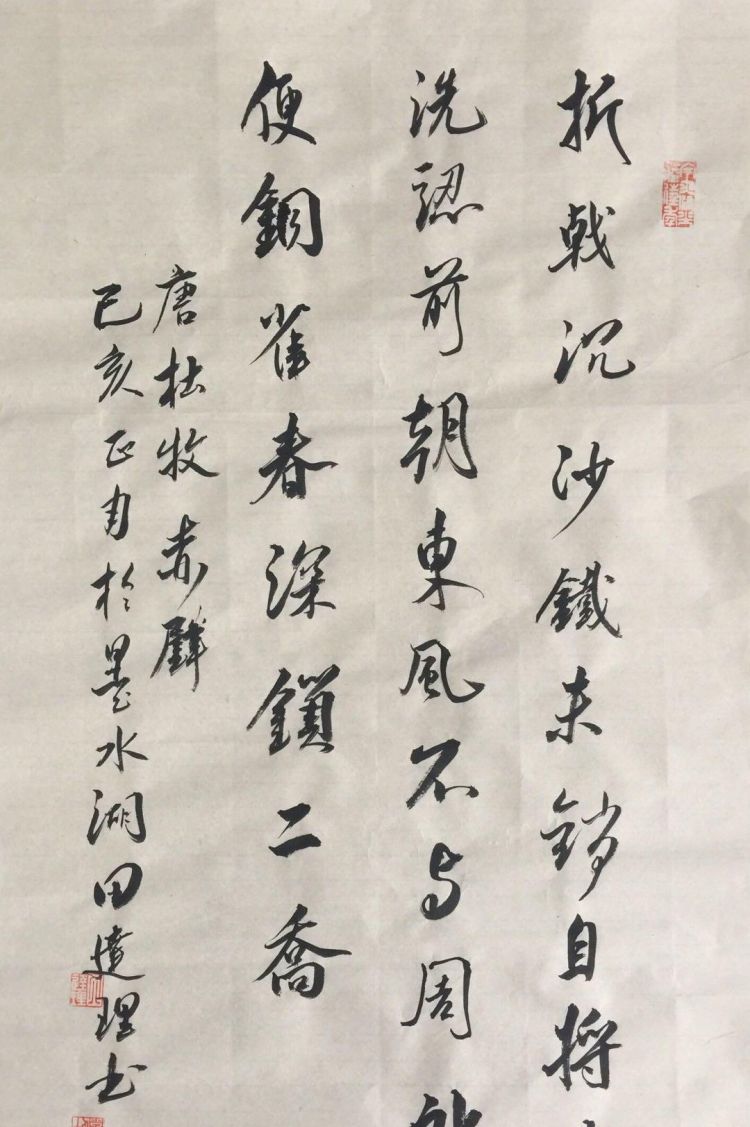 折戟沉沙鐵未銷自將
洗認前朝東風不与周
便銅雀春深鎖二喬
唐杜牧赤壁
己亥正月於墨水湖田達理书